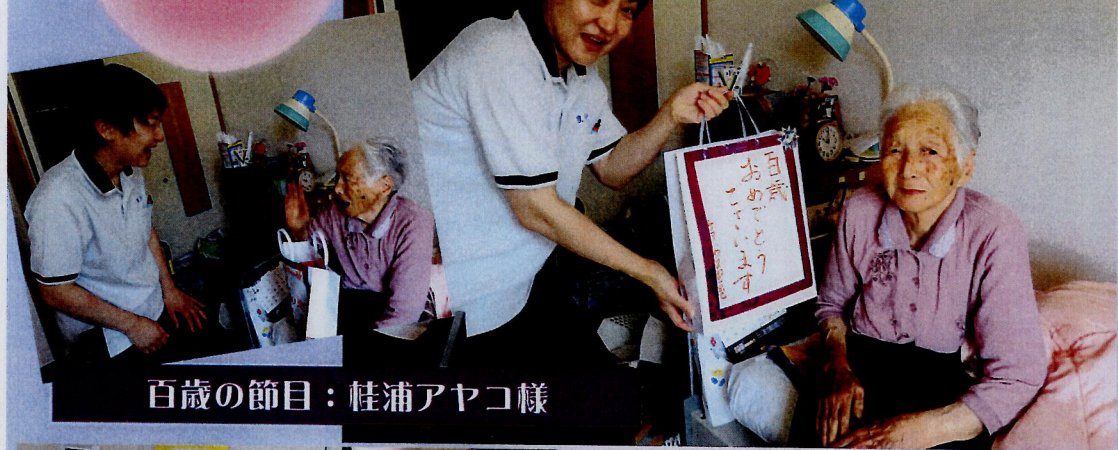 百歳
おめでとう
ございます
百歳の節目:桂浦アヤコ様